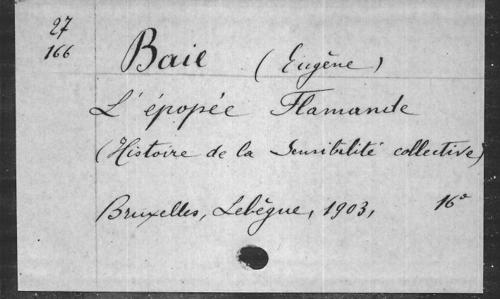 27
166
Baie (Eugène)
L'épopée Flamande
(Histoire de la Sensibilité collective)
Bruxelles, Lebègue, 1903, 16°